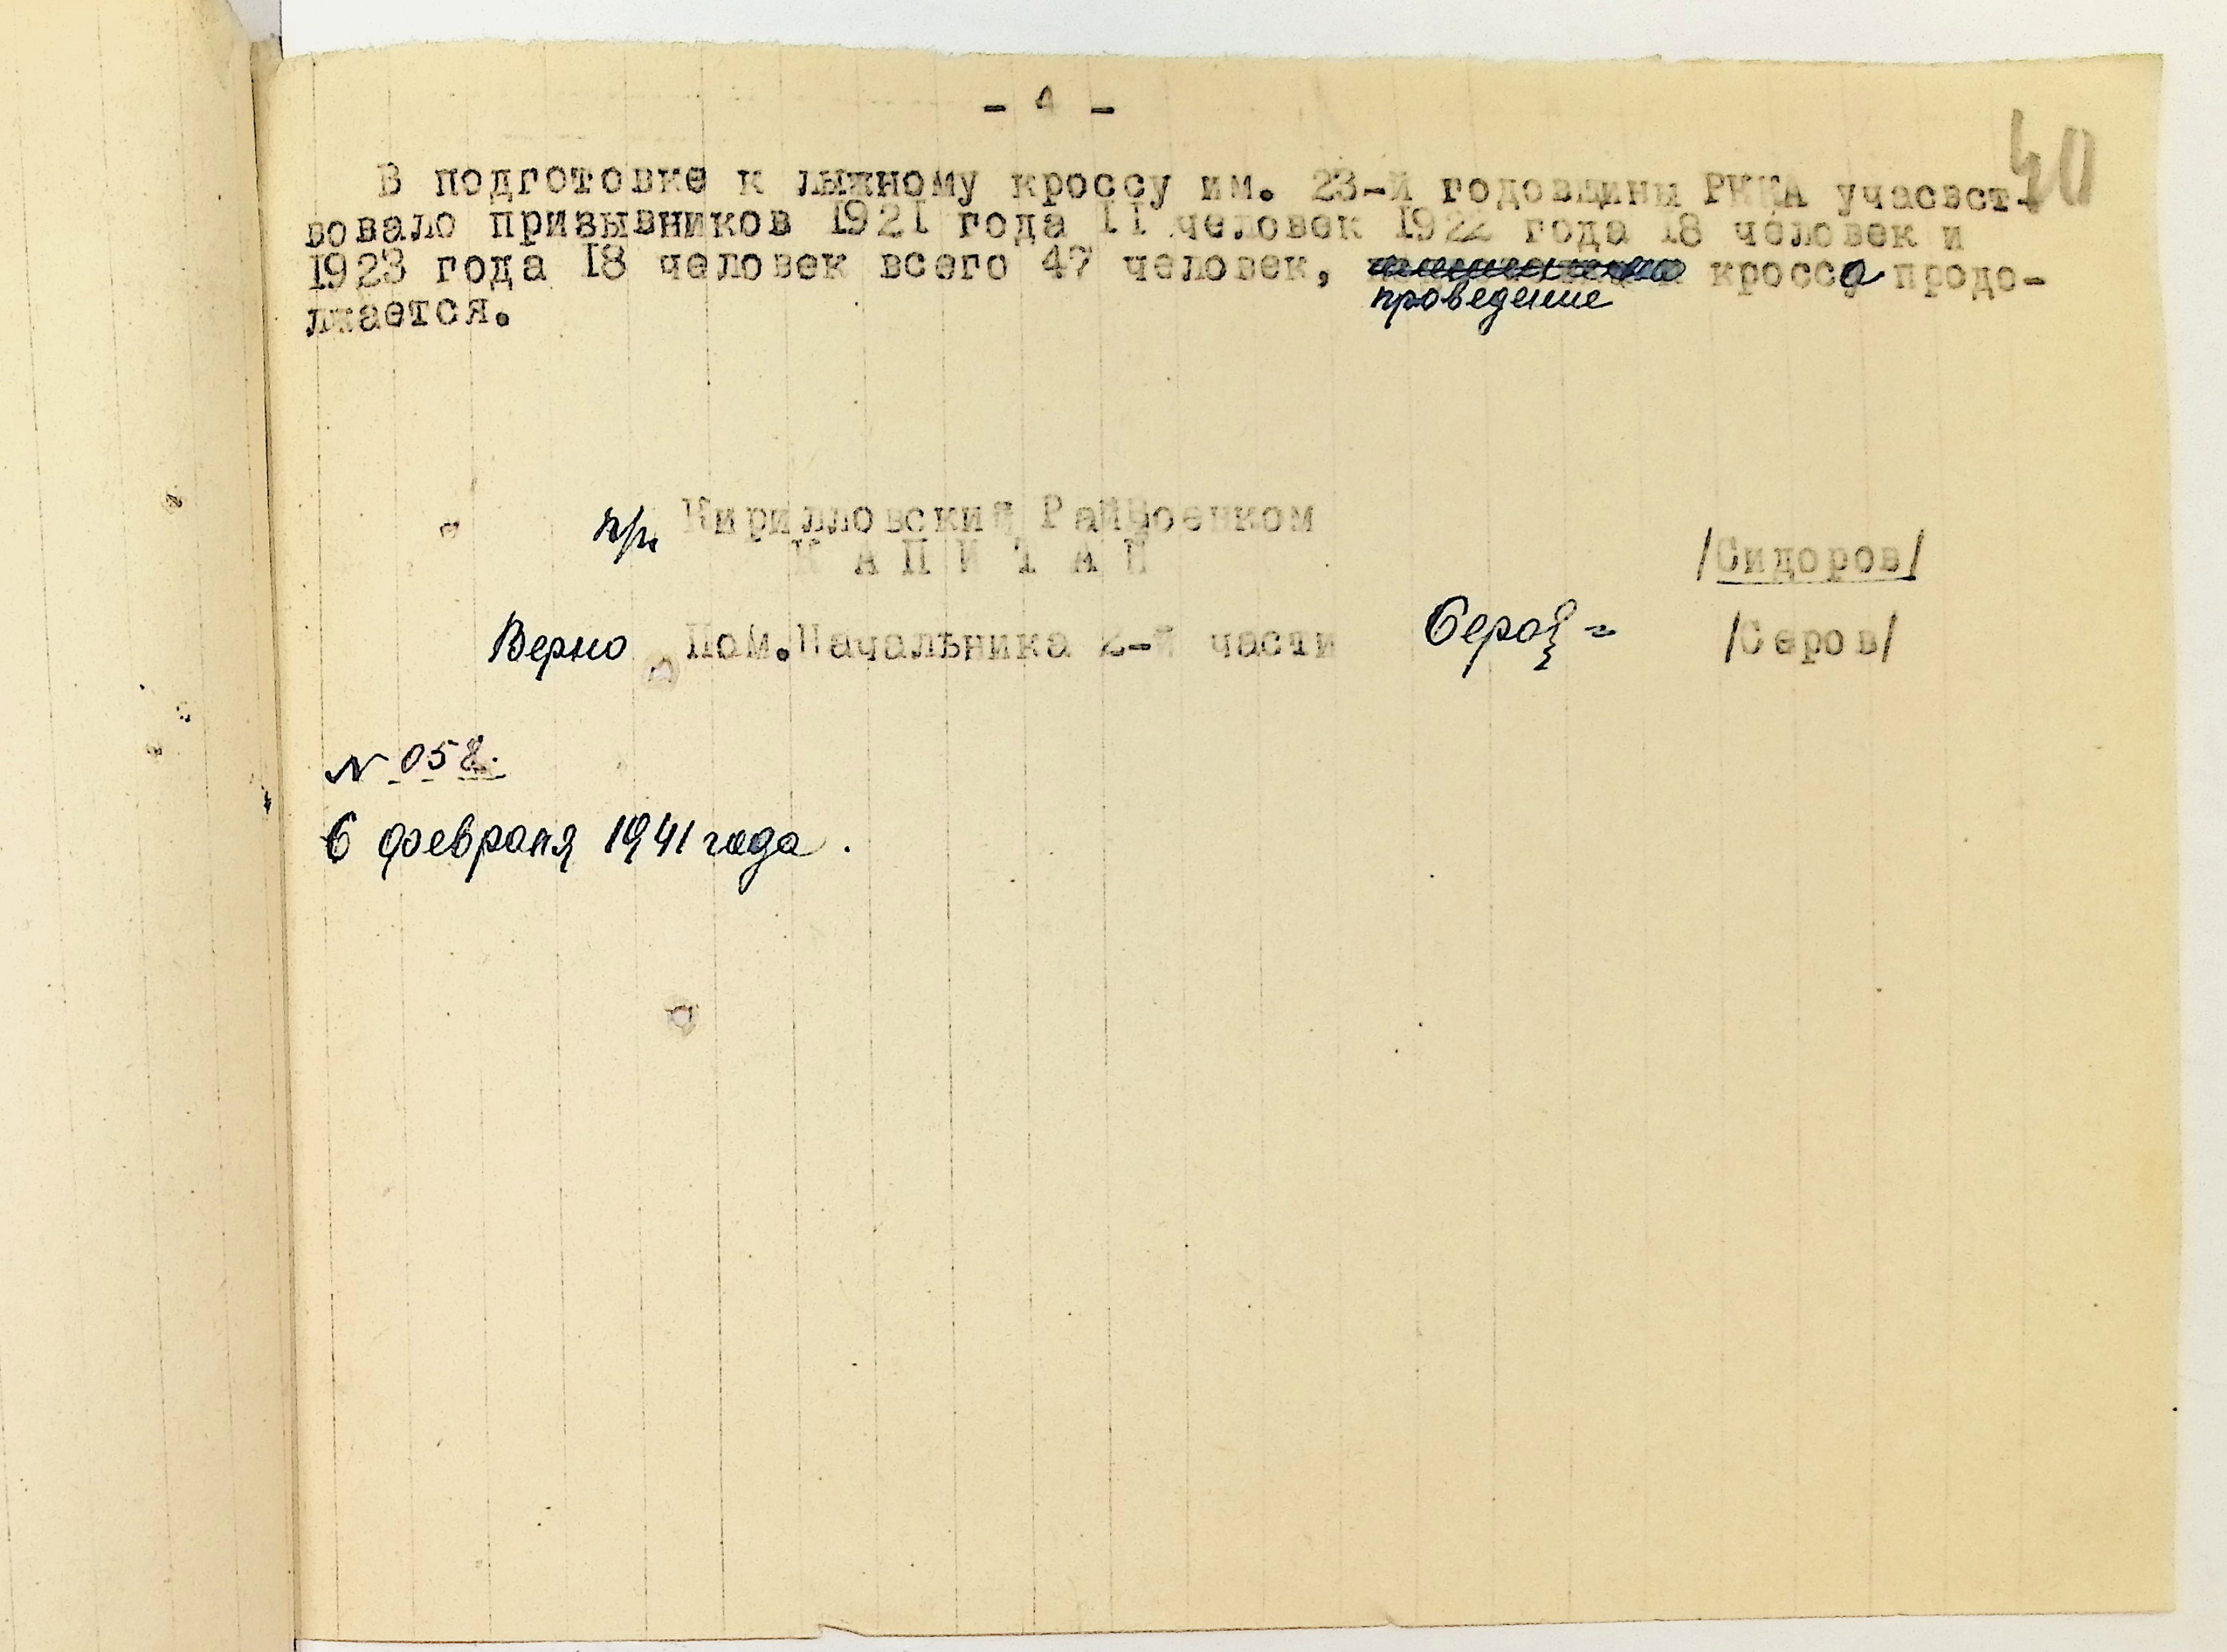 - 4 -
40
В подготовке к лыжному кроссу им. 23-й годовщины РККА учасвст-
вовало призывников 1921 года 11 человек 1922 года 18 человек и
1923 года 18 человек всего 47 человек, кросса продо-
проведение
лжается.
пр. Кирилловский Райвоенком
КАПИТАН
/Сидоров/
Верно Пом.Начальника 2-й части Серов /Серов/
№ 058.
6 февраля 1941 года.